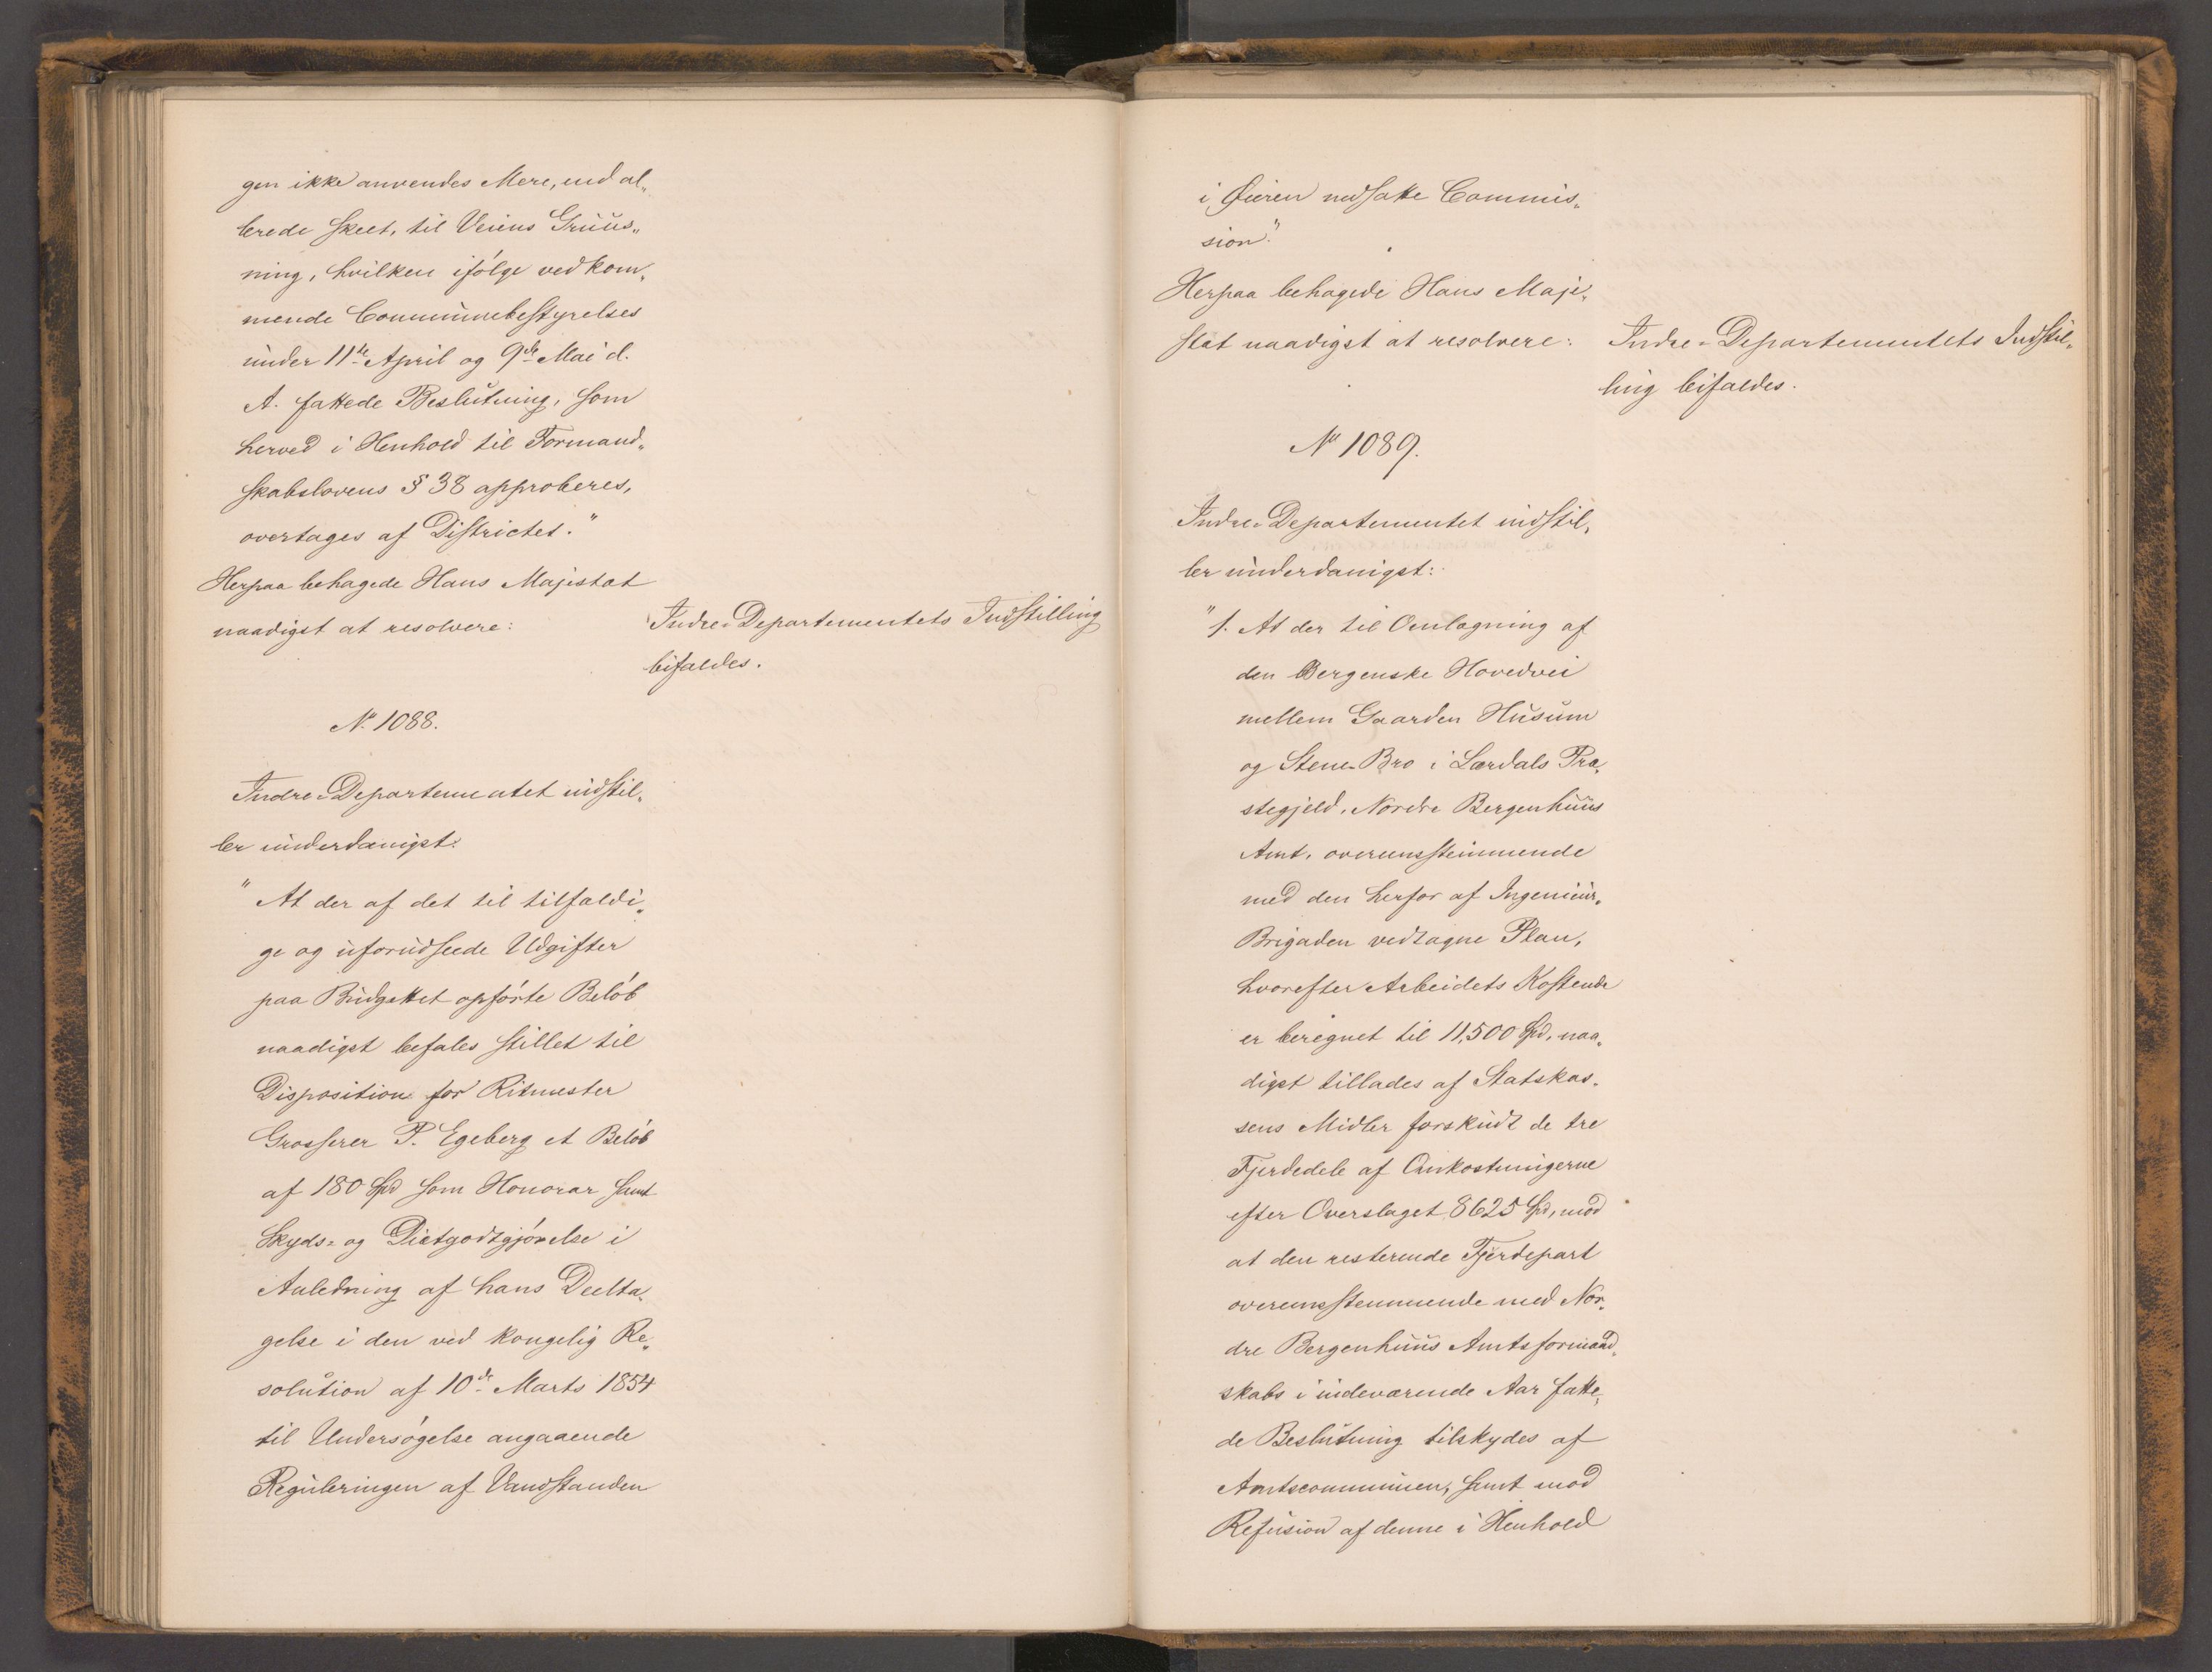 gen ikke anvendes Mere, end al„
lerede skeet, til Veiens Gruus„
ning, hvilken ifølge vedkom„
mende Communebestyrelses
under 11te April og 9de Mai d.
A. fattede Beslutning, som
herved i Henhold til Formand„
skabslovens § 38 approberes,
overtages af Districtet."
Herpaa behagede Hans Majestæt
naadigst at resolvere:
Indre-Departementets Indstilling
bifaldes.
No 1088.
Indre-Departementet indstil„
ler underdanigst:
"At der af det til tilfældi„
ge og uforudseede Udgifter
paa Budgettet opførte Beløb
naadigst befales stillet til
Disposition for Ritmester
Grosserer P. Egeberg et Beløb
af 180 Spd som Honorar samt
Skyds- og Diætgodtgjørelse i
Anledning af hans Deelta„
gelse i den ved kongelig Re„
solution af 10de Marts 1854
til Undersøgelse angaaende
Reguleringen af Vandstanden
i Øieren nedsatte Commis„
sion."
Herpaa behagede Hans Maje„
stæt naadigst at resolvere:
Indre-Departementets Indstil„
ling bifaldes.
No 1089.
Indre-Departementet indstil„
ler underdanigst:
"1. At der til Omlægning af
den Bergenske Hovedvei
mellem Gaarden Husum
og Stene-Bro i Lærdals Præ„
stegjeld, Nordre Bergenhuus
Amt, overeensstemmende
med den herfor af Ingenieur„
Brigaden vedtagne Plan,
hvorefter Arbeidets Kostende
er beregnet til 11,500 Spd, naa„
digst tillades af Statskas„
sens Midler forskudt de tre
Fjerdedele af Omkostningerne
efter Overslaget 8625 Spd, mod
at den resterende Fjerdepart
overeensstemmende med Nor„
dre Bergenhuus Amtsformand„
skabs i indeværende Aar fatte„
de Beslutning tilskydes af
Amtscommunen, samt mod
Refusion af denne i Henhold